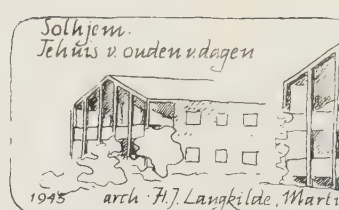 Solhjem.
Tehuis v. ouden v. dagen
1945 arch. H.J. Langkilde, Marti